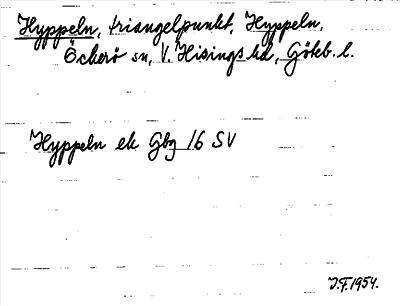 Hyppeln, triangelpunkt, Hyppeln,
Öckerö sn, V. Hisings hd, Göteb. l.
Hyppeln ek Gbg 16 SV
J.F. 1954.